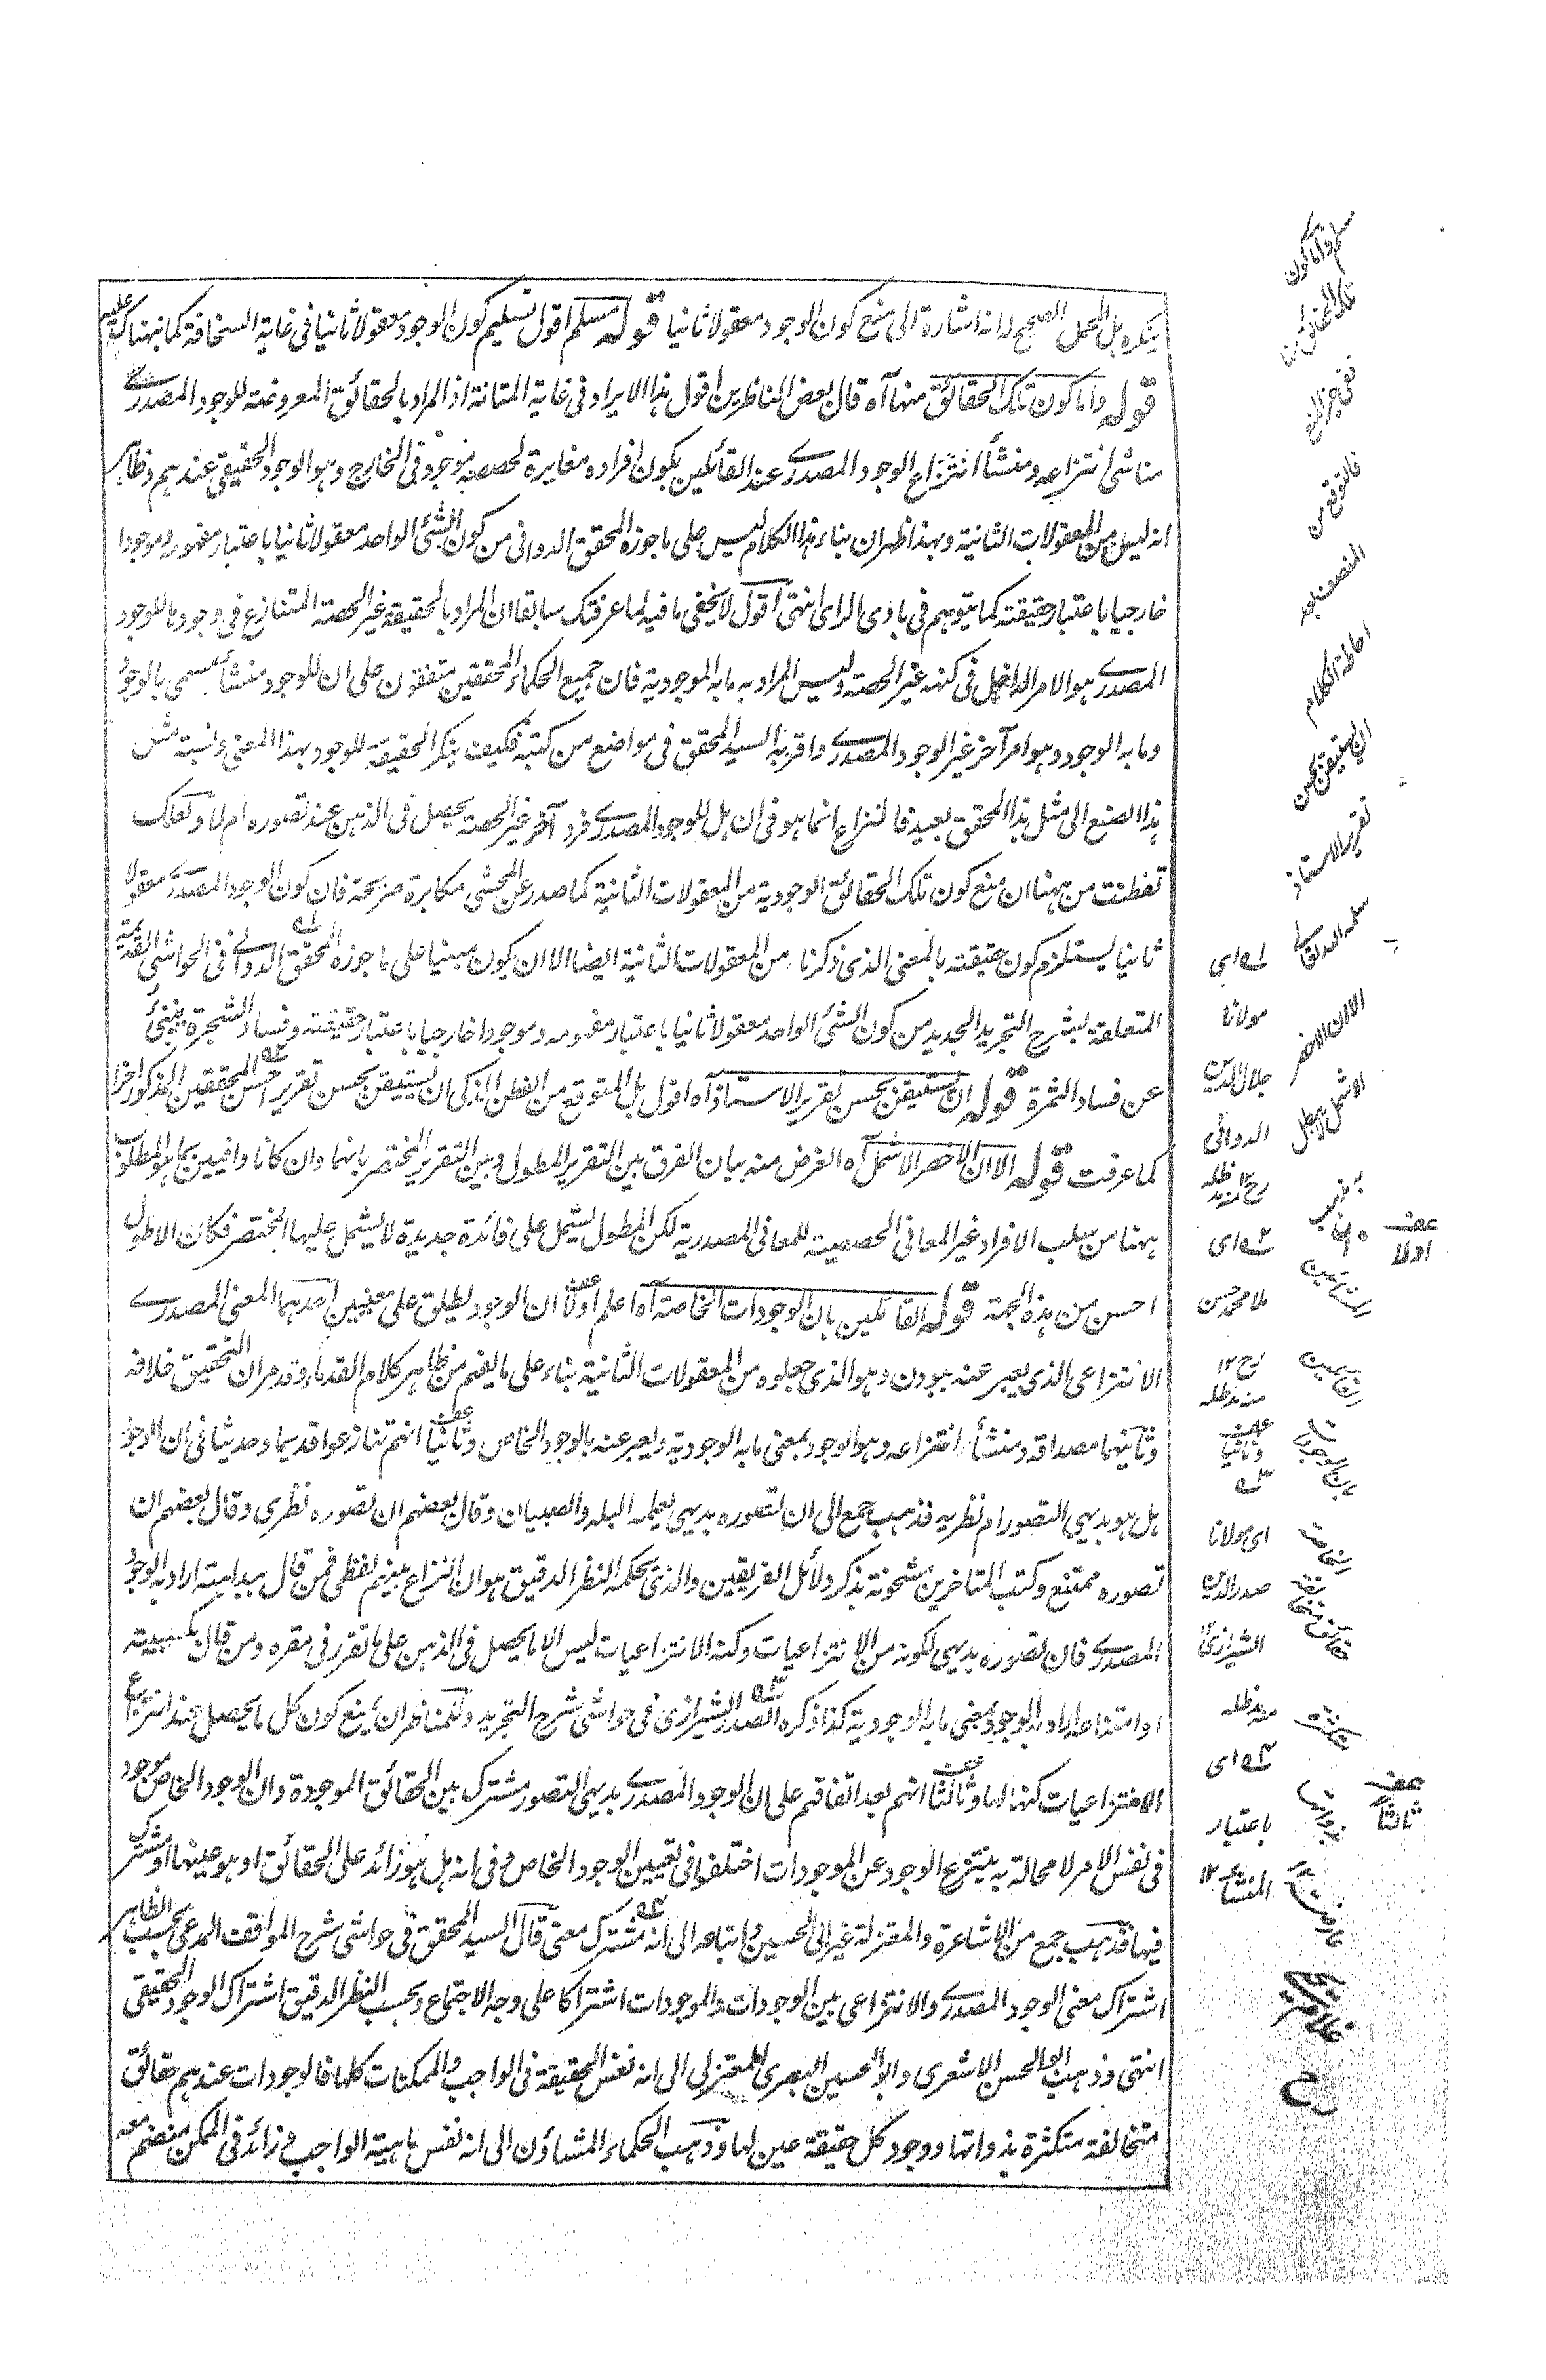 ينكره بل المحمل الصحيح له انه اشارة الى منع كون الوجود معقولا ثانيا قوله مسلم اقول تسليم كون الوجود معقولا ثانيا فى غاية السخافة كما نبهناك عليه
قوله واما كون تلك الحقائق منها آه قال بعض الناظرين اقول هذا الايراد فى غاية المتانة اذ المراد بالحقائق المعروضة للوجود المصدرى
مناشى انتزاعه ومنشأ انتزاع الوجود المصدرى عند القائلين بكون افراده مغايرة لحصصه موجود فى الخارج وهو الوجود الحقيقى عندهم وظاهر
انه ليس من المعقولات الثانية وبهذا ظهر ان بناء هذا الكلام ليس على ما جوزه المحقق الدوانى من كون الشئ الواحد معقولا ثانيا باعتبار مفهومه وموجودا
خارجيا باعتبار حقيقته كما يتوهم فى بادى الراى انتهى اقول لا يخفى ما فيه لما عرفتك سابقا ان المراد بالحقيقة غير الحصة المتنازع فى وجودها للوجود
المصدرى هو الامر الداخل فى كنهه غير الحصة وليس المراد به ما به الموجودية فان جميع الحكماء المحققين متفقون على ان للوجود منشأ يسمى بالوجود
وما به الوجود وهو امر آخر غير الوجود المصدرى واقر به السيد المحقق فى مواضع من كتبه فكيف ينكر الحقيقة للوجود بهذا المعنى ونسبة مثل
هذا الصنع الى مثل هذا المحقق بعيد فالنزاع انما هو فى ان هل للوجود المصدرى فرد آخر غير الحصة يحصل فى الذهن عند تصوره ام لا ولعلك
تفطنت من ههنا ان منع كون تلك الحقائق الوجودية من المعقولات الثانية كما صدر عن المحشى مكابرة صريحة فان كون الوجود المصدرى معقولا
ثانيا يستلزم كون حقيقته بالمعنى الذى ذكرنا من المعقولات الثانية ايضا الا ان يكون مبنيا على ما جوزه المحقق الدوانى فى الحواشى القديمة
المتعلقة بشرح التجريد الجديد من كون الشئ الواحد معقولا ثانيا باعتبار مفهومه وموجودا خارجيا باعتبار حقيقته وفساد الشجرة ينبئ
عن فساد الثمرة قوله ان يستيقن بحسن تقرير الاستاذ آه اقول بل المتوقع من الفطن الذكى ان يستيقن بحسن تقرير احسن المحققين المذكور آخرا
كما عرفت قوله الا ان الاخصر الاشمل آه الغرض منه بيان الفرق بين التقرير المطول وبين التقرير المختصر بانهما وان كانا وافيين بما هو المطلوب
ههنا من سلب الافراد غير المعانى الحصصية للمعانى المصدرية لكن المطول يشمل على فائدة جديدة لا يشمل عليها المختصر فكان الاطول
احسن من هذه الجهة قوله القائلين بان الوجودات الخاصة آه اعلم اولا ان الوجود يطلق على معنيين احدهما المعنى المصدرى
الانتزاعى الذى يعبر عنه ببودن وهو الذى جعلوه من المعقولات الثانية بناء على ما يفهم من ظاهر كلام القدماء وقد مر ان التحقيق خلافه
وثانيهما مصداقه ومنشأ انتزاعه وهو الوجود بمعنى ما به الموجودية ويعبر عنه بالوجود الخاص وثانيا انهم تنازعوا قديما وحديثا فى ان الوجود
هل هو بديهى التصور ام نظريه فذهب جمع الى ان تصوره بديهى يعلمه البله والصبيان وقال بعضهم ان تصوره نظرى وقال بعضهم ان
تصوره ممتنع وكتب المتاخرين مشحونة بذكر دلائل الفريقين والذى يحكمه النظر الدقيق هو ان النزاع بينهم لفظى فمن قال ببداهته اراد به الوجود
المصدرى فان تصوره بديهى لكونه من الانتزاعيات وكنه الانتزاعيات ليس الا ما يحصل فى الذهن على ما تقرر فى مقره ومن قال بكسبيته
او امتناعه اراد به الوجود بمعنى ما به الموجودية كذا ذكره الصدر الشيرازى فى حواشى شرح التجريد وللمناظر ان يمنع كون كل ما يحصل عند انتزاع
الانتزاعيات كنها لها وثالثا انهم بعد اتفاقهم على ان الوجود المصدرى بديهى التصور مشترك بين الحقائق الموجودة وان الوجود الخاص موجود
فى نفس الامر لا محالة به ينتزع الوجود عن الموجودات اختلفوا فى تعيين الوجود الخاص وفى انه هل هو زائد على الحقائق او هو عينها او مشترك
فيها فذهب جمع من الاشاعرة والمعتزلة غير ابى الحسين واتباعه الى انه مشترك معنى قال السيد المحقق فى حواشى شرح المواقف المدعى بحسب الظاهر
اشتراك معنى الوجود المصدرى والانتزاعى بين الوجودات والموجودات اشتراكا على وجه الاجتماع وبحسب النظر الدقيق اشتراك الوجود الحقيقى
انتهى وذهب ابو الحسن الاشعرى وابو الحسين البصرى المعتزلى الى انه نفس الحقيقة فى الواجب والممكنات كلها فالوجودات عندهم حقائق
متخالفة متكثرة بذواتها ووجود كل حقيقة عين لها وذهب الحكماء المشاؤن الى انه نفس ماهية الواجب وزائد فى الممكن منضم معه
مسلم واما كون
تلك الحقائق من
فالتوقع من
المنصف بعد
احاطة الكلام
ان يستيقن بحسن
تقرير الاستاذ
سلمه الله تعالى
الا ان الاخصر
بان الوجودات
الخاصة
حقائق متخالفة
متكثرة
بذواتها
غلام يحيى
رح
له اى
مولانا
جلال الدين
الدوانى
رح ١٢ منه مد ظله
٢ه اى
ملا محمد حسن
رح ١٢
منه مد ظله
وثانيا
٣ه
اى مولانا
صدر الدين
الشيرازى ١٢
منه مد ظله
٤ه اى
باعتبار
المنشأ ١٢
اولا
ثالثا